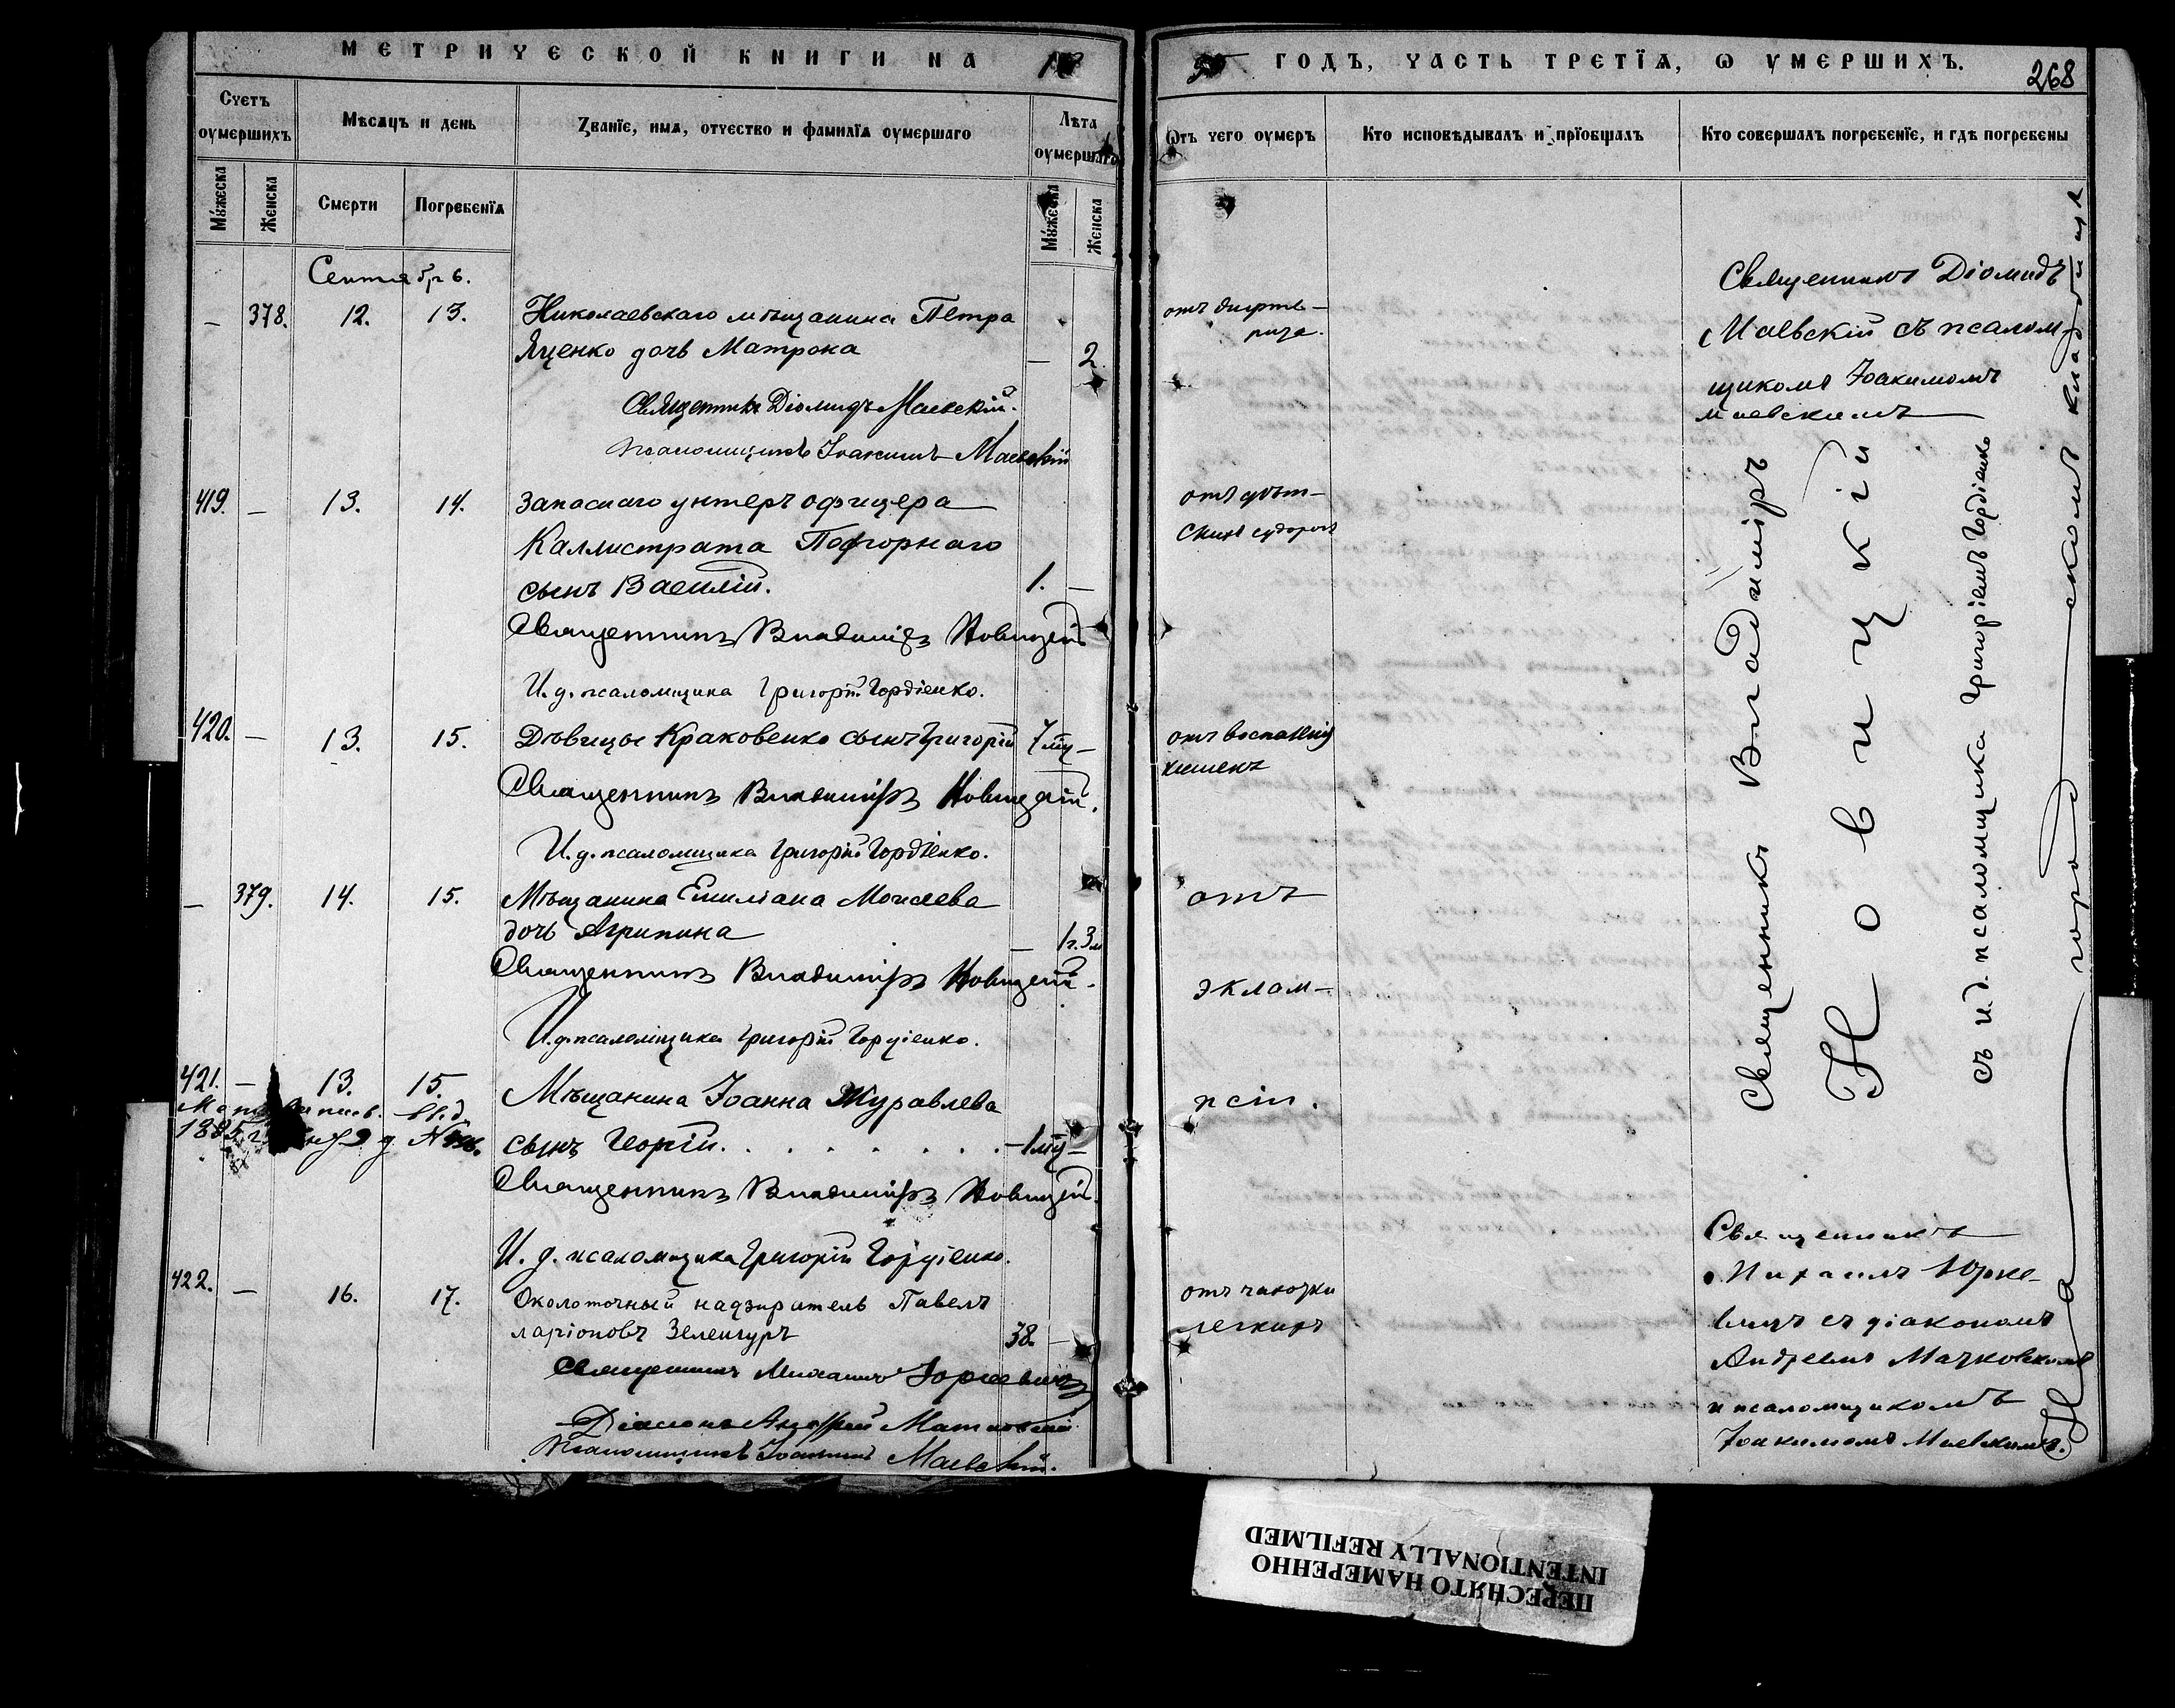 МЕТРИЧЕСКОЙ КНИГИ НА 18
95 ГОДЪ, ЧАСТЬ ТРЕТІЯ, Ѡ УМЕРШИХЪ.
268
Счетъ оумершихъ
Мѣсяцъ и день
Званїе, имя, отчество и фамилїя оумершаго
Лѣта оумершаго
Ѿтъ чего оумеръ
Кто исповѣдывалъ и прїобщалъ
Кто совершалъ погребенїе, и гдѣ погребены
Мужеска
Женска
Смерти
Погребенїя
Мужеска
Женска
Сентябрь.
— 378. 12. 13. Николаевскаго мѣщанина Петра
Яценко дочь Матрона — 2
Священникъ Діомидъ Маевскій.
Псаломщикъ Іоакимъ Маевскій
отъ дифте-
рита.
Священникъ Діомидъ
Маевскій съ псалом-
щикомъ Іоакимомъ
Маевскимъ
419. — 13. 14. Запаснаго унтеръ офицера
Каллистрата Подгорнаго
сынъ Василій. 1. —
Священникъ Владиміръ Новицкій
И. д. псаломщика Григорій Гордіенко.
отъ дѣт-
скихъ судорогъ
420. — 13. 15. Дѣвицы Краковенко сынъ Григорій 7 мц —
Священникъ Владиміръ Новицкій.
И. д. псаломщика Григорій Гордіенко.
отъ воспаленія
кишекъ
— 379. 14. 15. Мѣщанина Емиліана Моисеева
дочь Агрипина — 1 г. 3 м
Священникъ Владиміръ Новицкій.
И. д. псаломщика Григорій Гордіенко.
отъ
эклам-
псіи.
421. — 13. 15. Мѣщанина Іоанна Журавлева
1885 г.
сынъ Георгій. — 1 мц —
Священникъ Владиміръ Новицкій.
И. д. псаломщика Григорій Гордіенко.
Священникъ Владиміръ
Новицкій
съ и.д. псаломщика Григоріемъ Гордіенко
На городскомъ кладбищѣ
422. — 16. 17. Околоточный надзиратель Павелъ
Ларіоновъ Зеленгуръ 38. —
Священникъ Михаилъ Юркевичъ
Діаконъ Андрей Мачковскій
Псаломщикъ Іоакимъ Маевскій.
отъ чахотки
легкихъ
Священникъ
Михаилъ Юрке-
вичъ съ діакономъ
Андреемъ Мачковскимъ
и псаломщикомъ
Іоакимомъ Маевскимъ.
ПЕРЕСНЯТО НАМЕРЕННО
INTENTIONALLY REFILMED